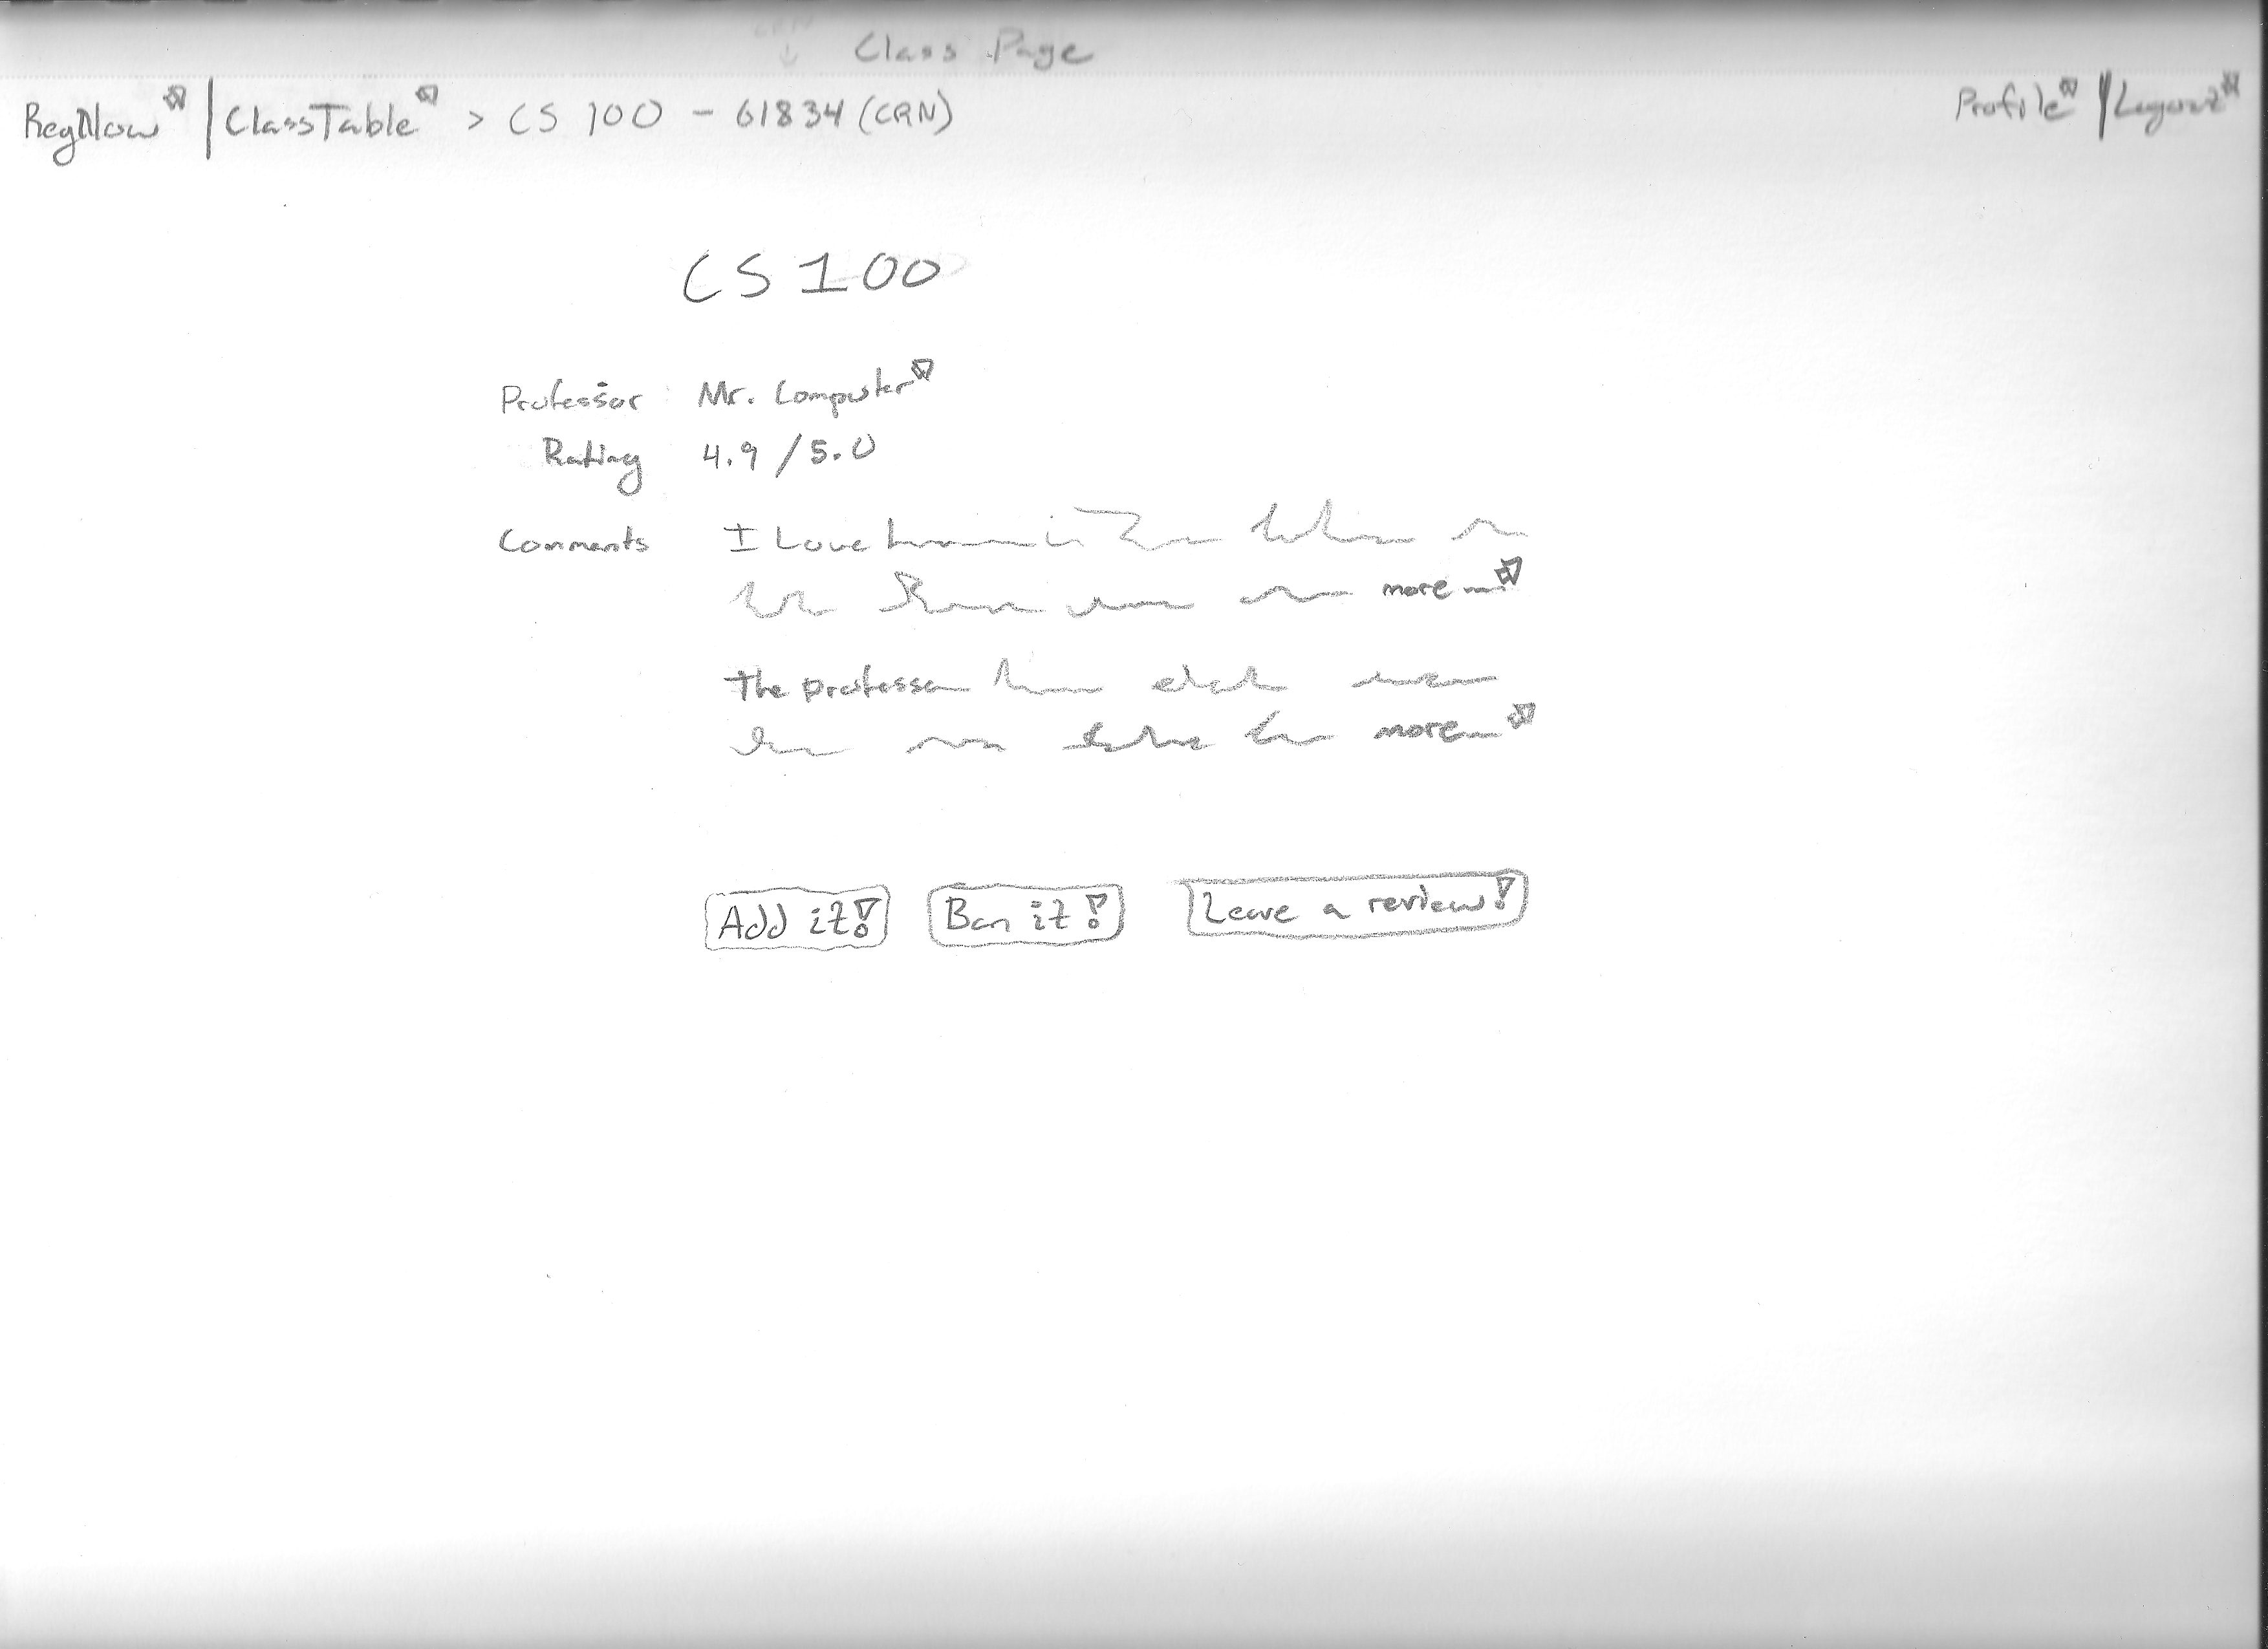 Class Page
RegNow | ClassTable > CS 100 - 61834 (CRN)
Profile | Logout
CS 100
Professor Mr. Computer
Rating 4.9 / 5.0
Comments I Love
more
The professor
more
Add it! Ban it! Leave a review!